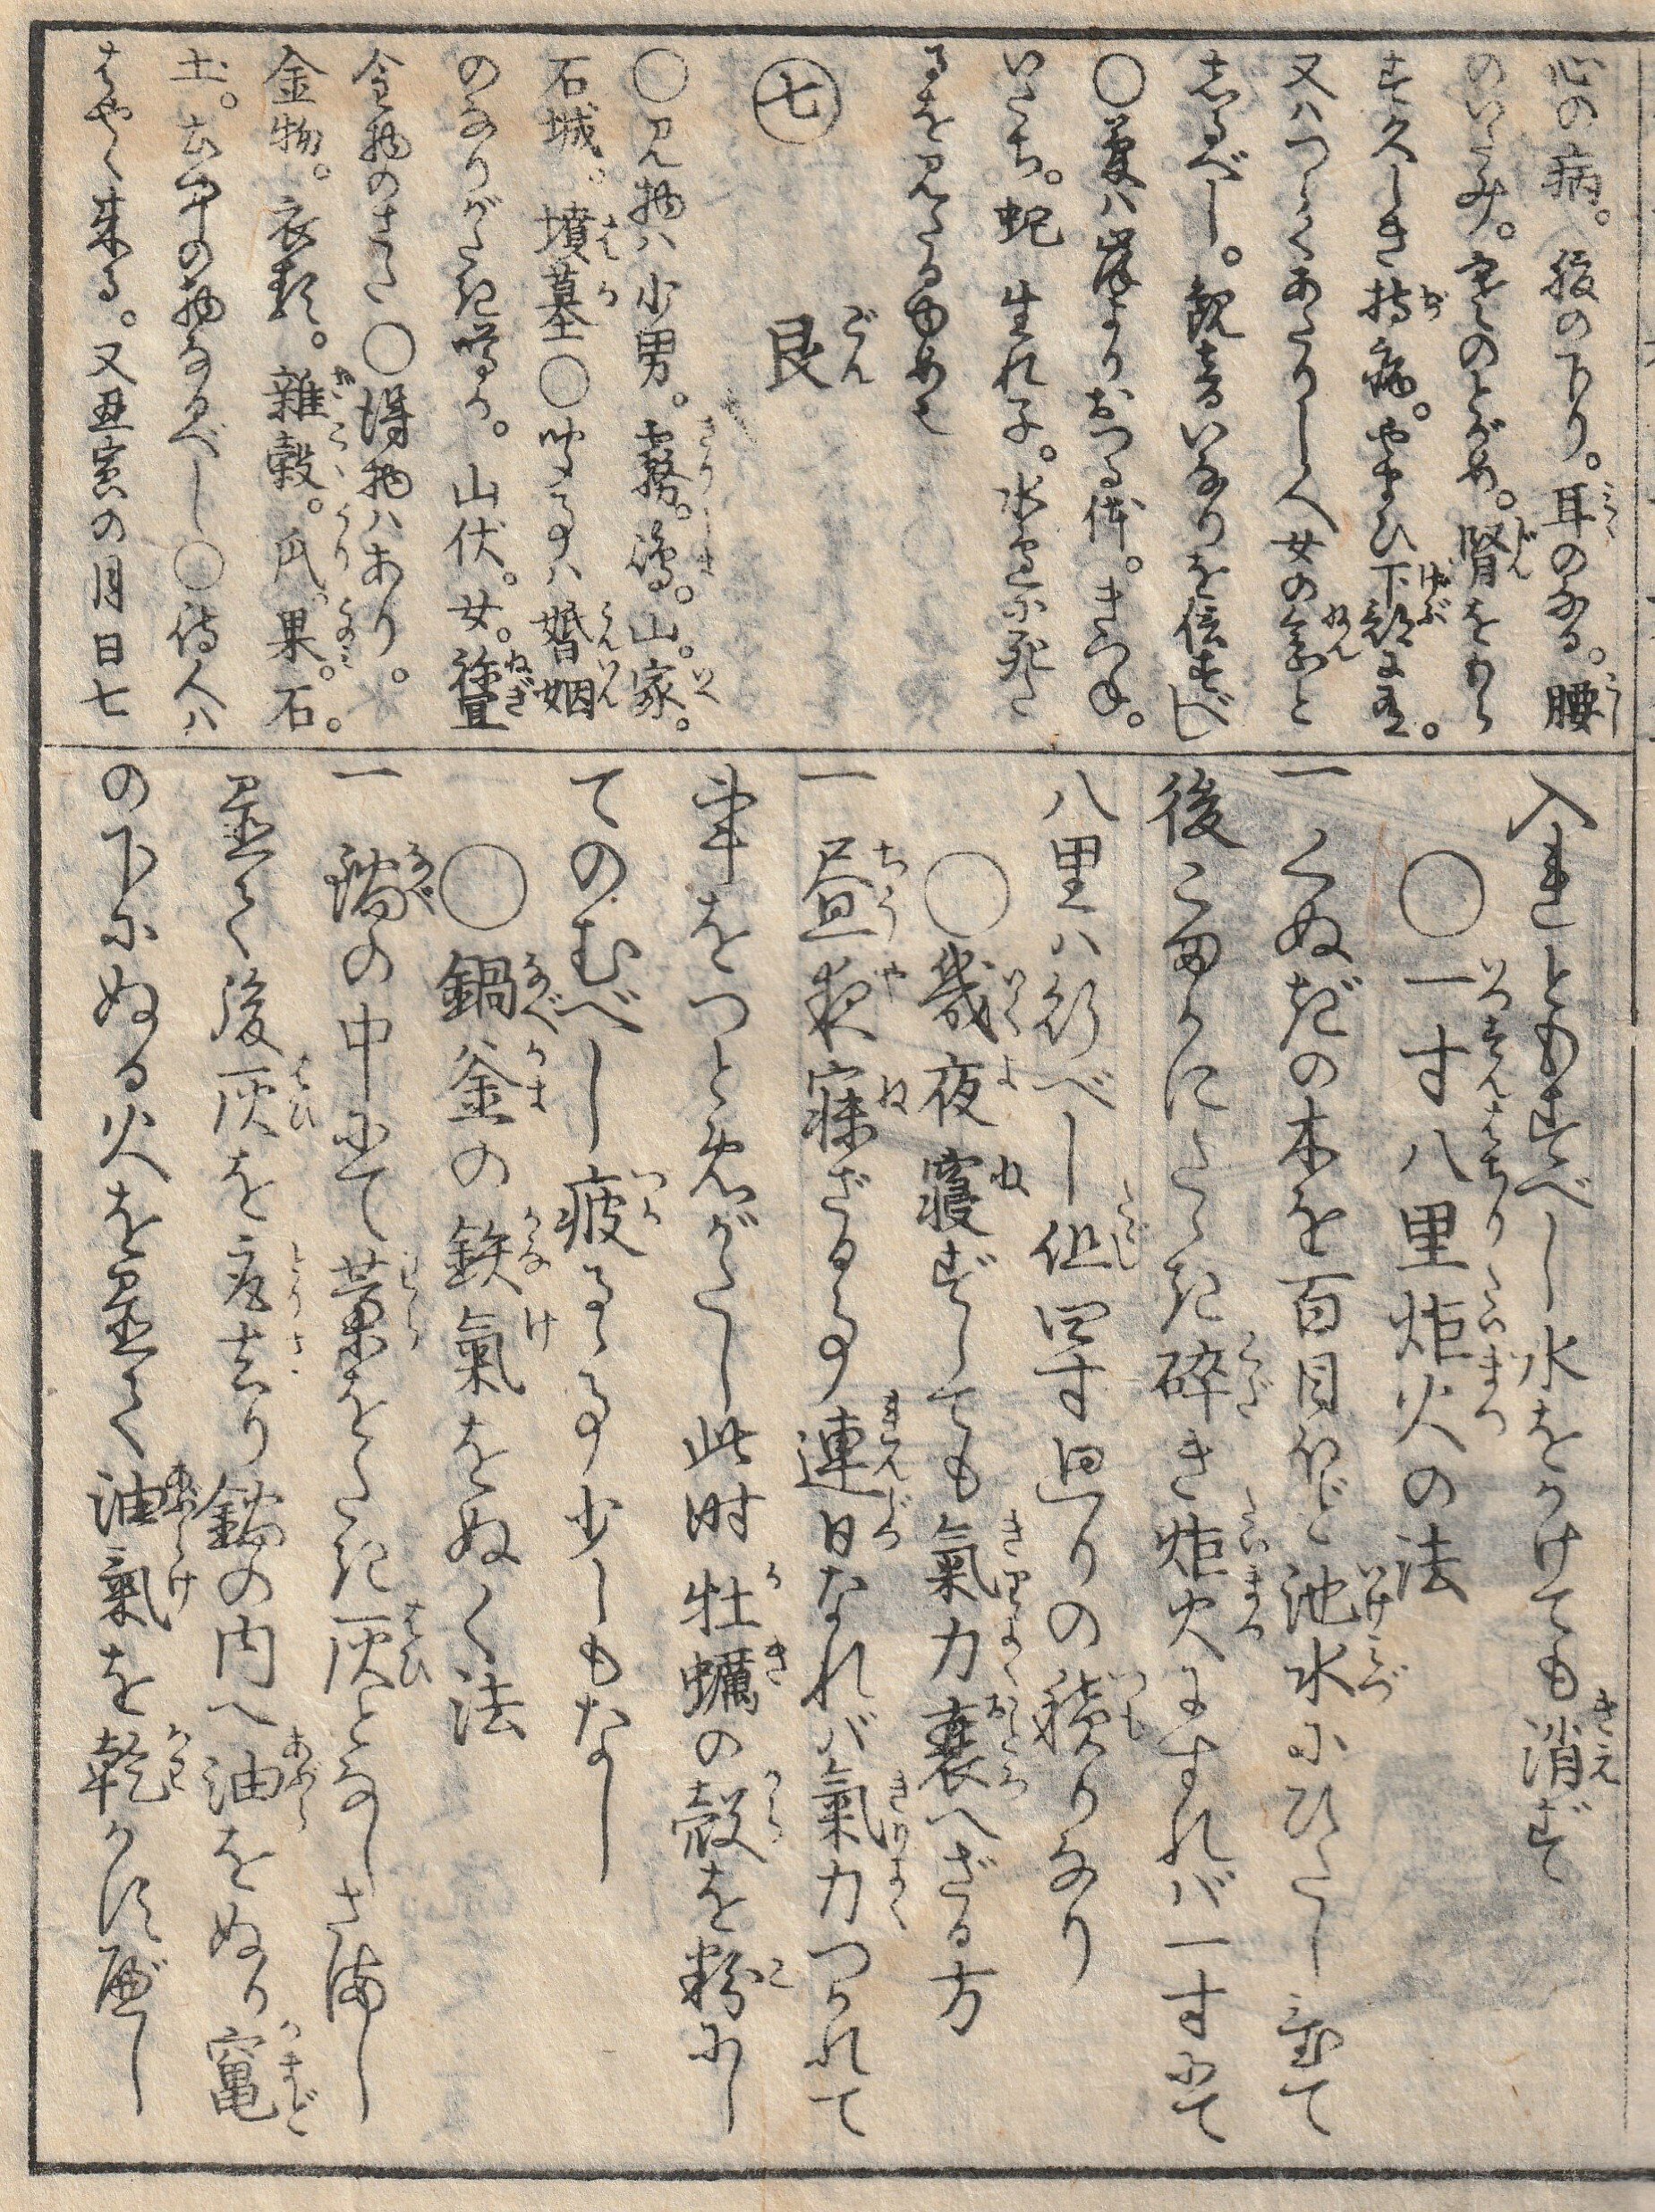 心の病。後の下り。耳のなる。腰
のいたみ。寒のとがめ。腎をわら
す久しき持病。やまひ下部にあり。
又ハつよくあたりし人女の念と
しるべし。観音いなりを信ずべし
〇夢ハ崖よりおつる体。きつね。
いたち。蛇 生れ子。水
るを見たる由あと
七 艮
〇見物ハ少男。霧。嶋。山。家。
石城。墳墓〇聞事ハ婚姻
のなりがたき噂か。山伏。女。祢宜
金物のさた〇得物ハあり。
金物。衣類。雑穀。瓜。果。石。
土。山中の物なるべし〇待人ハ
はやく来る。又丑寅の月日七
入るともすべし水をかけても消ず
〇一寸八里炬火の法
一くぬぎの木を百目ほど池水にひたし置て
後こまかにたゝき砕き炬火にすれバ一寸にて
八里ハ行べし但四寸廻りの積りなり
〇幾夜寝ずしても氣力衰へざる方
一昼夜寐ざる事連日なれバ氣力つかれて
事をつとめがたし此時牡蠣の殻を粉にし
てのむべし疲るゝ事少しもなし
〇鍋釜の鉄氣をぬく法
一鍋の中にて藁をたき灰となしさまし
置て後灰を取去り鍋の内へ油をぬり竃
の下にぬる火を置て油氣を乾かす所べし